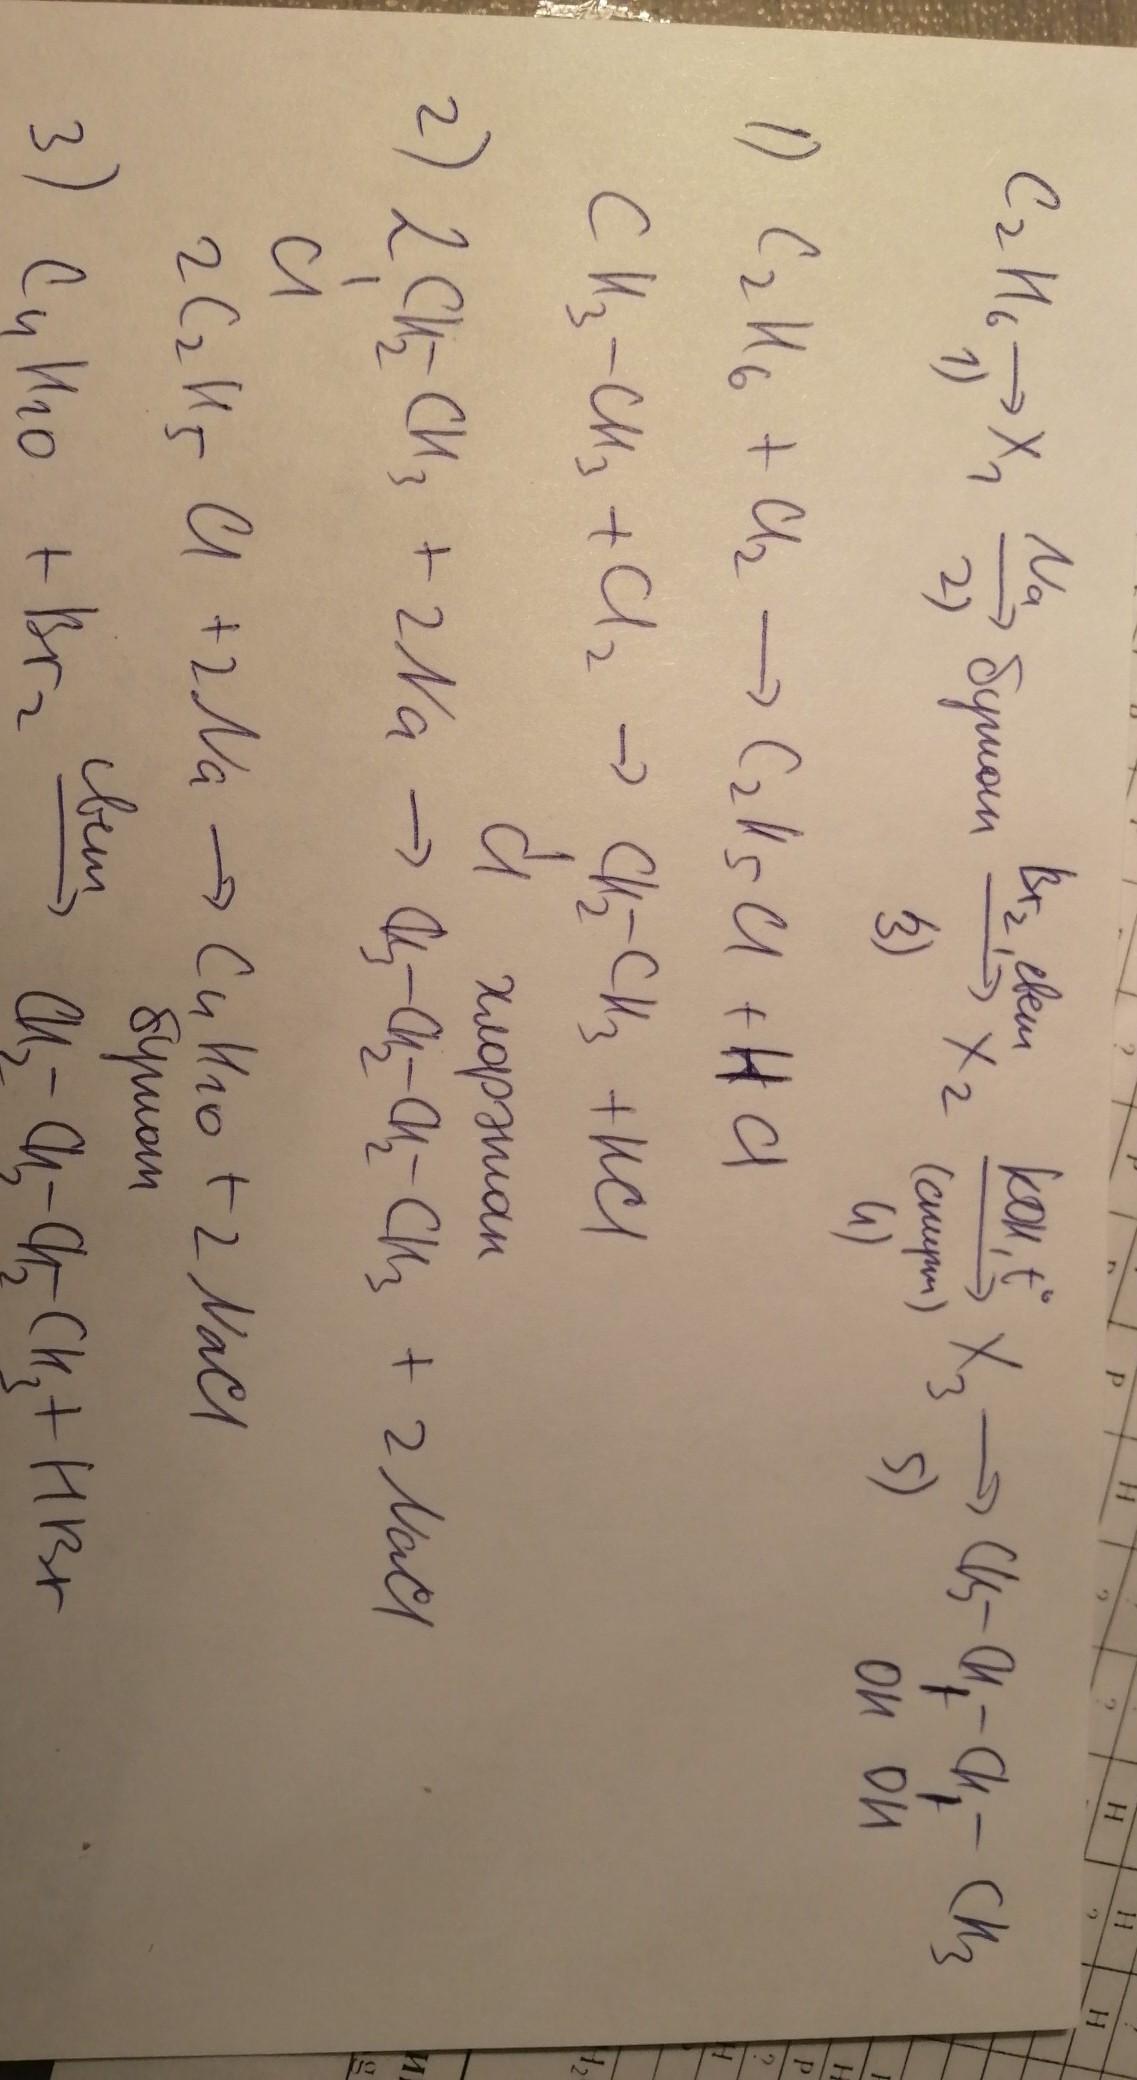 C₂H₆ → X₁ Na→ бутан Br₂, свет→ X₂ KOH, t°→ X₃ → CH₃–CH–CH–CH₃
1) 2) 3) (спирт) 4) 5) OH OH
1) C₂H₆ + Cl₂ → C₂H₅Cl + HCl
CH₃–CH₃ + Cl₂ → CH₂–CH₃ + HCl
Cl хлорэтан
2) 2CH₂–CH₃ + 2Na → CH₃–CH₂–CH₂–CH₃ + 2NaCl
Cl
2C₂H₅Cl + 2Na → C₄H₁₀ + 2NaCl
бутан
3) C₄H₁₀ + Br₂ свет→ CH₃–CH₂–CH₂–CH₃ + HBr